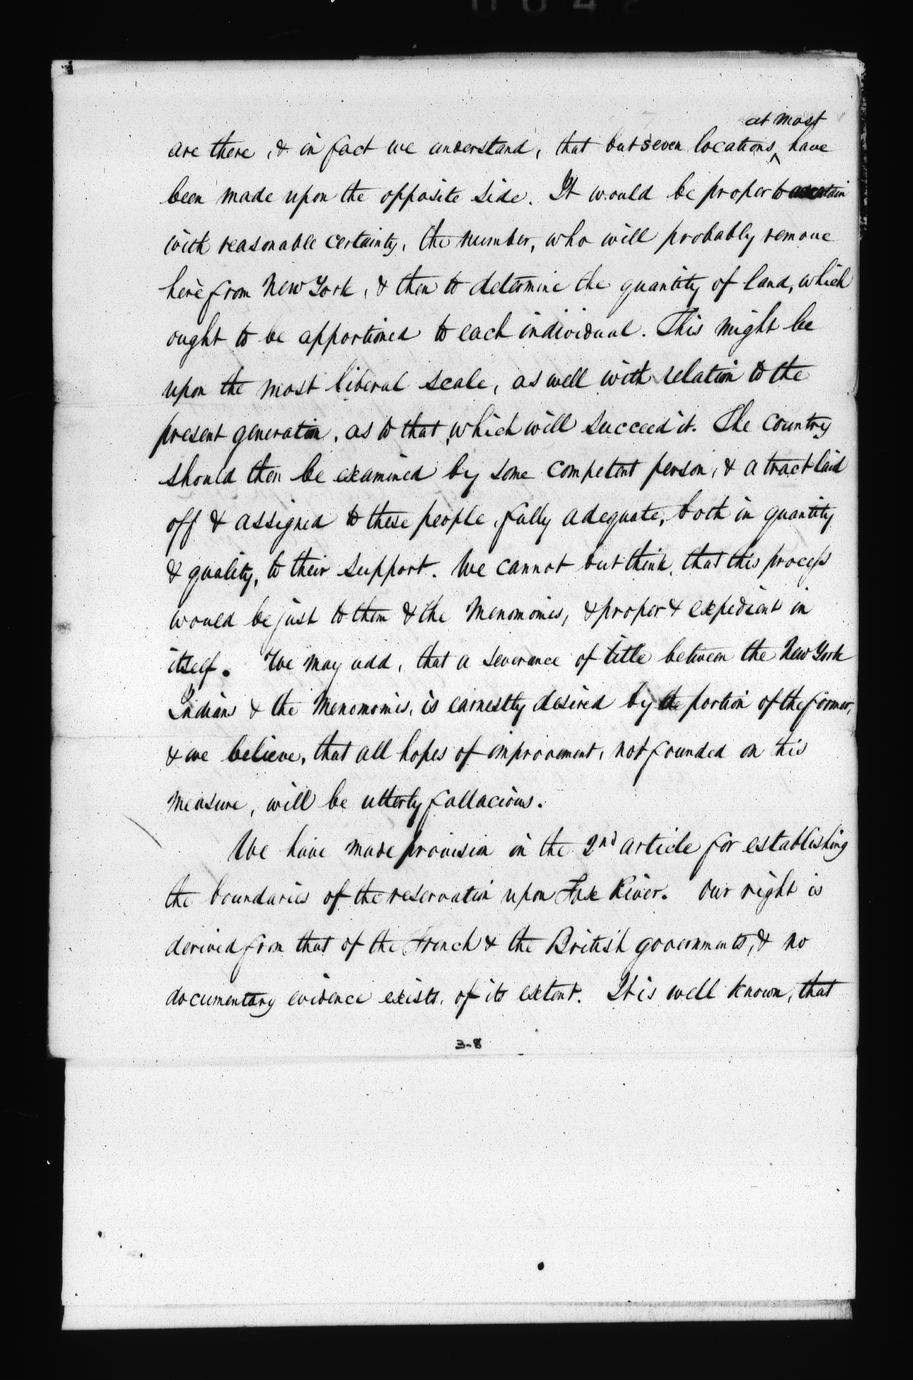 at most
are there, & in fact we understand, that but seven locations, ^ have
been made upon the opposite side. It would be proper to ascertain
with reasonable certainty, the number, who will probably remove
here from New York, & then to determine the quantity of land, which
ought to be apportioned to each individual. This might be
upon the most liberal scale, as well with relation to the
present generation, as to that, which will succeed it. The country
should then be examined by some competent person, & a tract laid
off & assigned to these people, fully adequate, both in quantity
& quality, to their support. We cannot but think, that this process
would be just to them & the Menomonies, & proper & expedient in
itself. We may add, that a severance of title between the New York
Indians & the Menomonies, is earnestly desired by the portion of the former,
& we believe, that all hopes of improvement, not founded on this
measure, will be utterly fallacious.
We have made provision in the 2nd article for establishing
the boundaries of the reservation upon Fox River. Our right is
derived from that of the French & the British governments, & no
documentary evidence exists, of its extent. It is well known, that
3-8